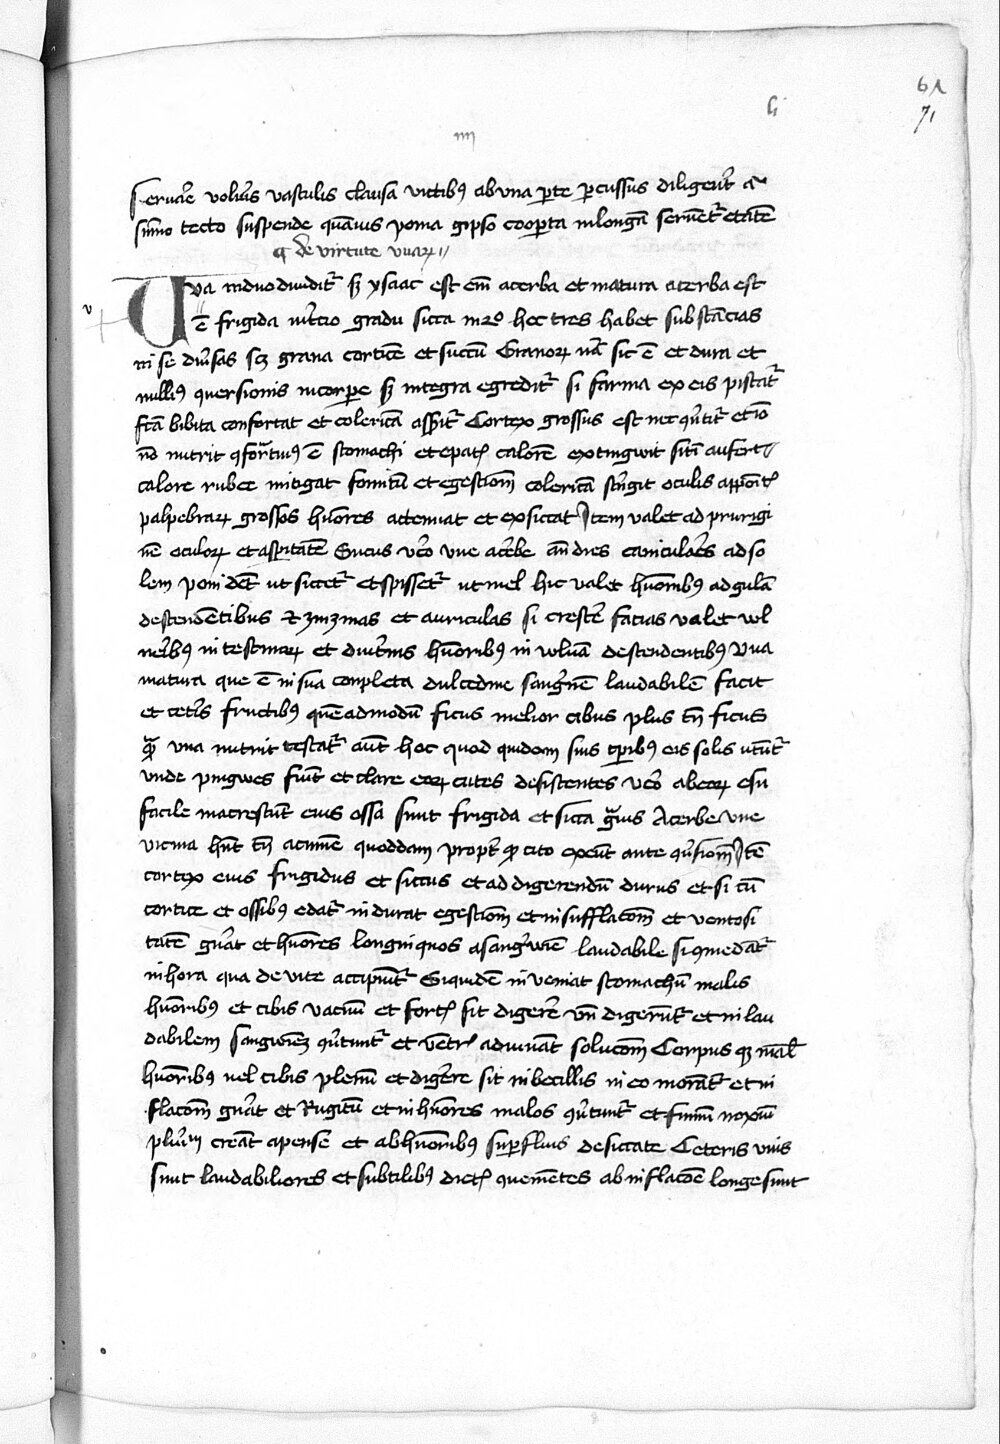 61
li
71
iiii
seruare volueris vasculis clausa vitibus ab una parte percussus diligenter a
simo tecto suspende quamuis poma gipso cooperta in longam seruentur etatem
de virtute vuarum
v
Vua in duo diuiditur scilicet ysaac est enim acerba et matura acerba est
frigida in tercio gradu sicca in 2o hec tres habet substancias
in se diuersas scilicet grana corticem et succum Granorum natura sic est et dura et
nullius conuersionis in corpore sed integra egreditur si farina ex eis pistatur
facta bibita confortat et colericam Cortex grossus est nec conuertitur et ideo
non nutrit confortatiuus est stomachi et epatis calorem extinguit sitim aufert
calore rubee mitigat fomitum et egestionem colericam stringit oculis appositus
palpebrarum grossos humores attenuat et exsiccat Item valet ad prurigi
nem oculorum et aspritatem Sucus vero vue acerbe an dies caniculares ad so
lem poni debet ut siccetur et spissetur ut mel hic valet humoribus ad gulam
descendentibus et zinzinas et auriculas si crescere facias valet vul
neribus intestinorum et diuersis humoribus in vuluam descendentibus Vua
matura que est in sua conpleta dulcedine sanguinem laudabilem facit
et ceteris fructibus quemadmodum ficus melior cibus plus tamen ficus
quam vua nutrit testatur autem hoc quod quidam suis temporibus eis solis utuntur
vnde pingwes fiunt et clare eorum cutes desistentes vero ab eorum esu
facile macrescunt eius ossa sunt frigida et sicca grauis Acerbe vue
vicina habent tamen acumen quoddam propter quod cito exeunt ante conuersionem Item
cortex eius frigidus et siccus et ad digerendum durus et si cum
cortice et ossibus edatur indurat egestionem et insufflacionem et ventosi
tatem generat et humores longinquos a sangwine laudabile si comedatur
in hora qua de vite accipiuntur Siquidem inueniat stomachum malis
humoribus et cibis vacuum et fortis sit digerere vnde digeruntur et in lau
dabilem sangwinem conuertuntur et ventris adiuuant solucionem Corpus quod malis
humoribus uel cibis plenum et digerere sit inbecillis in eo morantur et in
flacionem generat et Rugitum et in humores malos conuertuntur et fumum noxium
plurimum creant apense et ab humoribus superfluis desiccate Ceteris vuis
sunt laudabiliores et subtilibus dietis conuenientes ab inflacione longe sunt